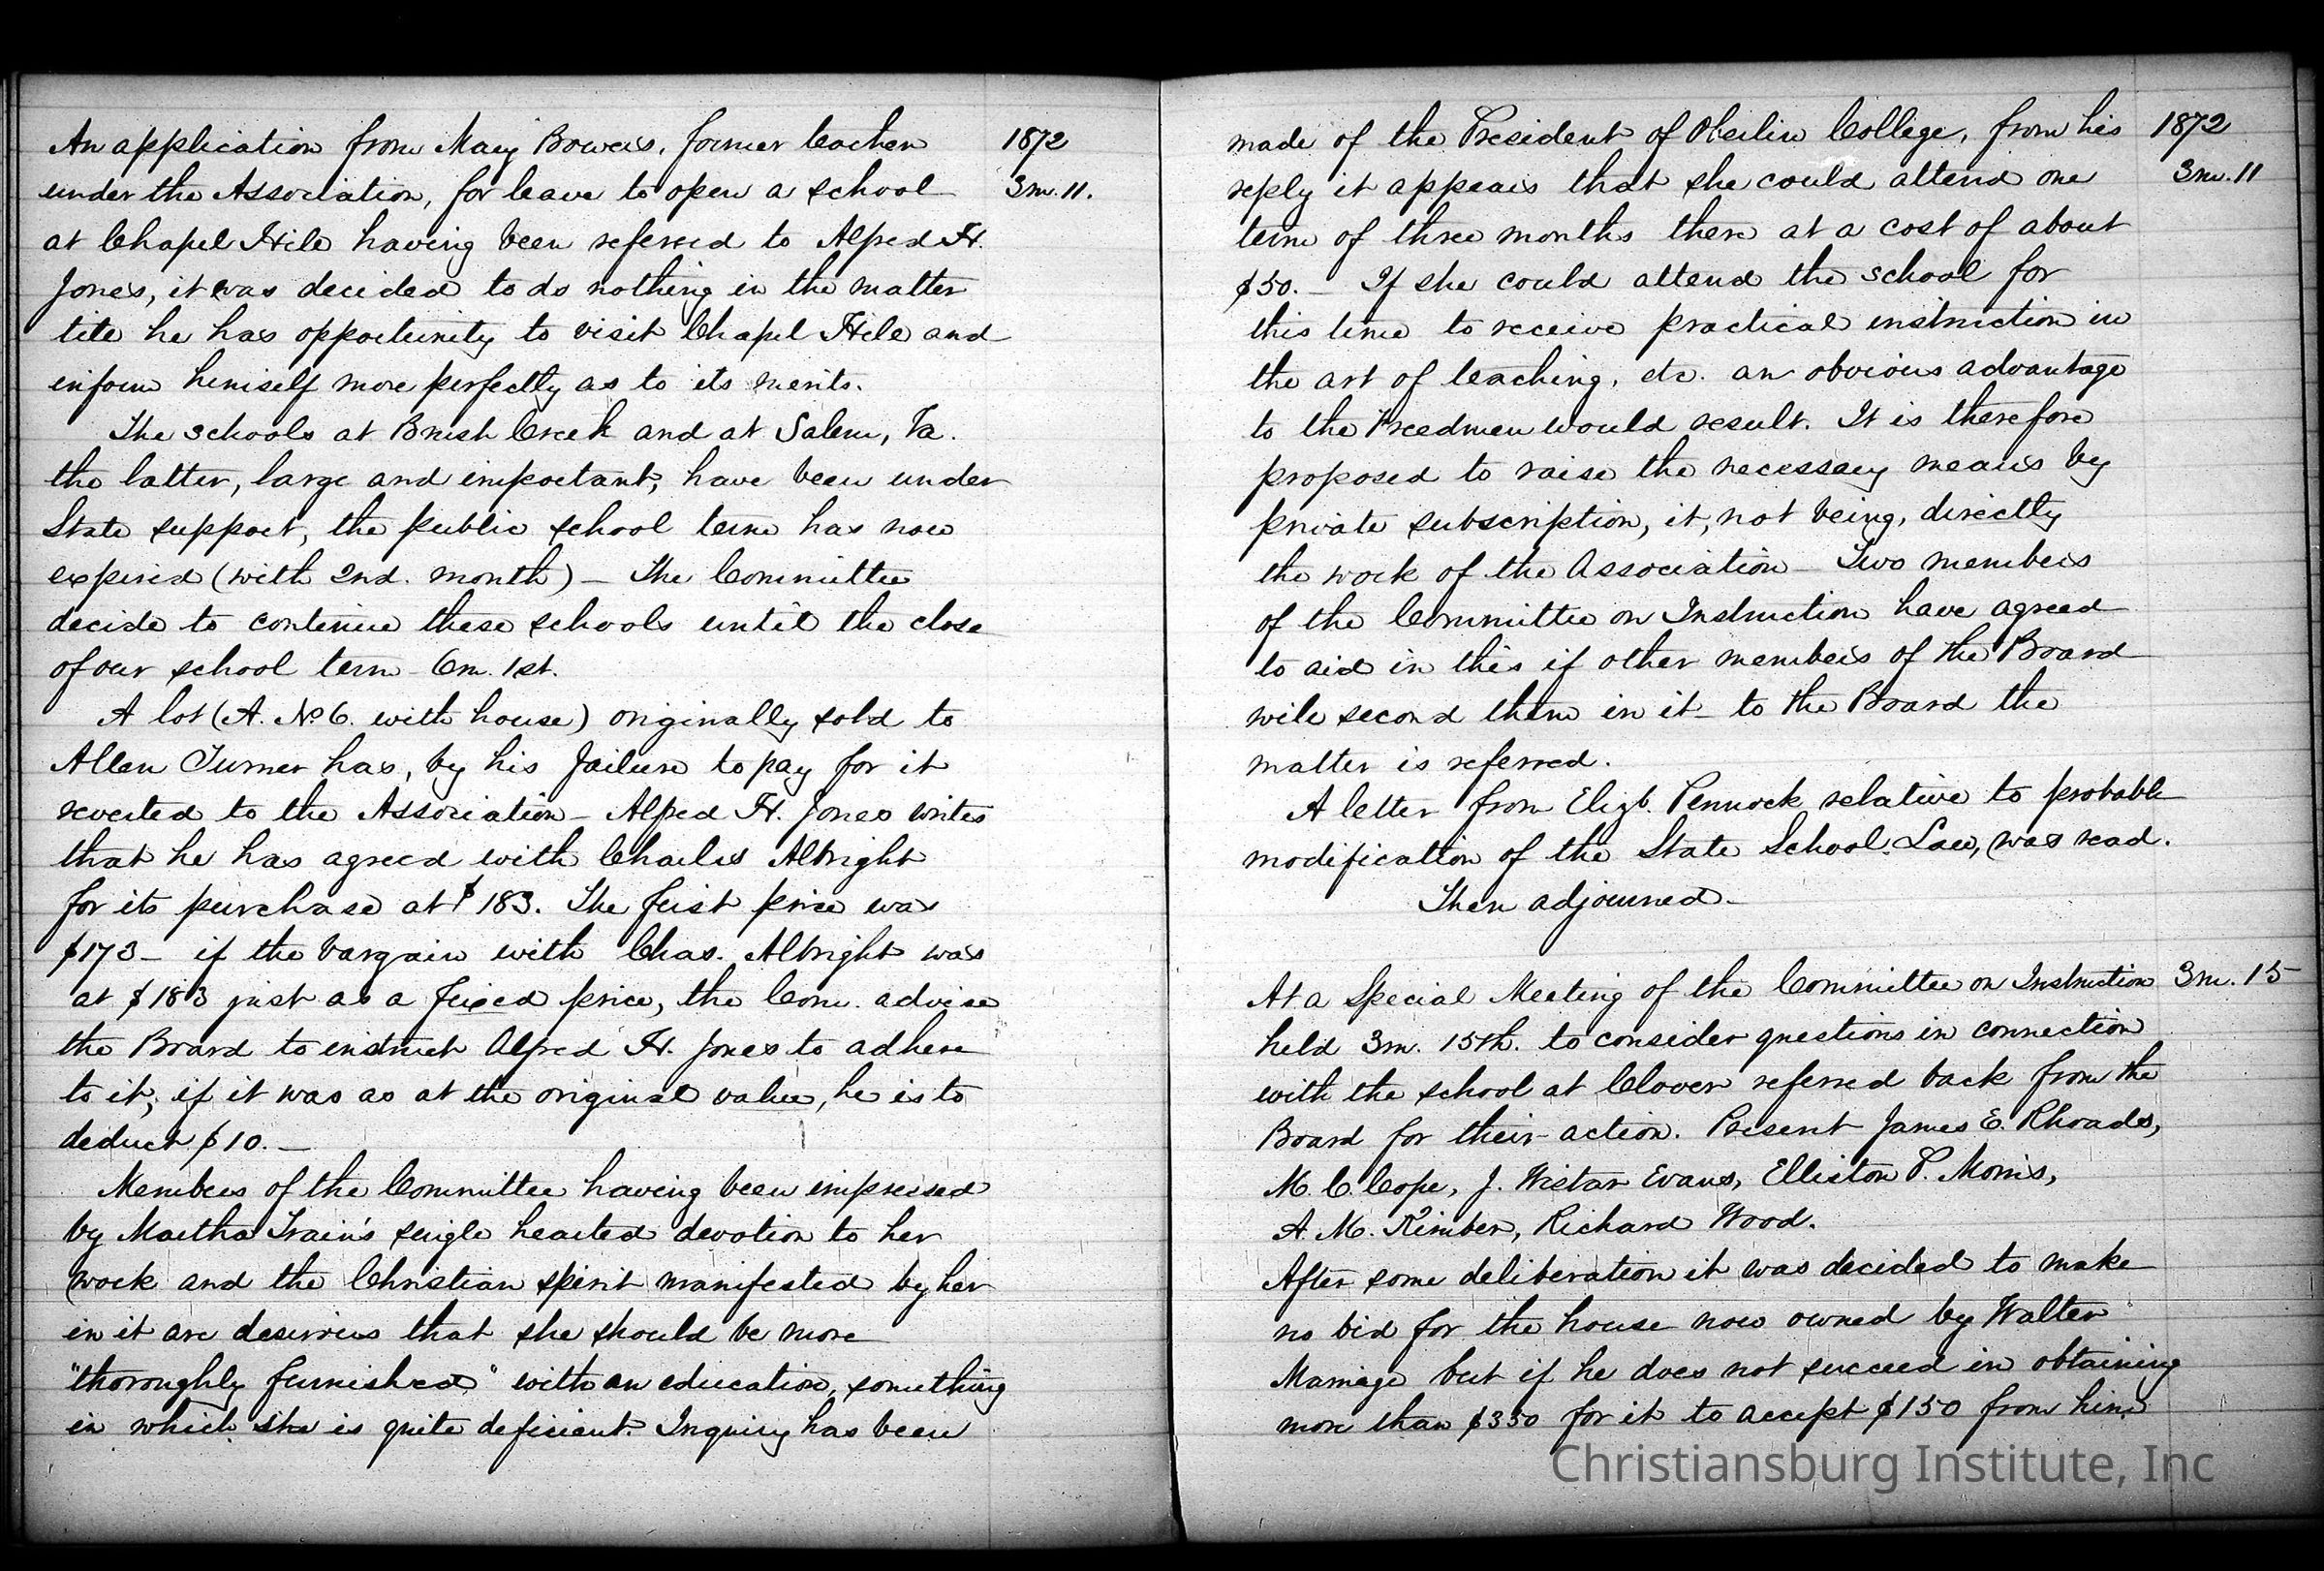 An application from Mary Bowers, former teacher 1872
under the Association, for leave to open a school 3m. 11.
at Chapel Hill having been referred to Alfred H.
Jones, it was decided to do nothing in the matter
till he has opportunity to visit Chapel Hill and
inform himself more perfectly as to its merits.
The schools at Brush Creek and at Salem, Va.
the latter, large and important, have been under
State support, the public school term has now
expired (with 2nd. month) – The Committee
decide to continue these schools until the close
of our school term – 6m. 1st.
A lot (A. No 6. with house) originally sold to
Allen Turner has, by his failure to pay for it
reverted to the Association – Alfred H. Jones writes
that he has agreed with Charles Albright
for its purchase at $183. The first price was
$173 – if the bargain with Chas. Albright was
at $183 just as a fixed price, the Com. advise
the Board to instruct Alfred H. Jones to adhere
to it, if it was as at the original value, he is to
deduct $10. –
Members of the Committee having been impressed
by Martha Train's single hearted devotion to her
work and the Christian spirit manifested by her
in it are desirous that she should be more
"thoroughly furnished" with an education, something
in which she is quite deficient. Inquiry has been
made of the President of Oberlin College, from his 1872
reply it appears that she could attend one 3m. 11
term of three months there at a cost of about
$50. – If she could attend the school for
this time to receive practical instruction in
the art of teaching, etc. an obvious advantage
to the Freedmen would result. It is therefore
proposed to raise the necessary means by
private subscription, it, not being, directly
the work of the Association – Two members
of the Committee on Instruction have agreed
to aid in this if other members of the Board
will second them in it – to the Board the
matter is referred.
A letter from Elizb. Pennock relative to probable
modification of the State School Law, was read.
Then adjourned –
At a Special Meeting of the Committee on Instruction 3m. 15
held 3m. 15th. to consider questions in connection
with the school at Clover referred back from the
Board for their action. Present James E. Rhoads,
M. C. Cope, J. Wistar Evans, Elliston P. Morris,
A. M. Kimber, Richard Wood.
After some deliberation it was decided to make
no bid for the house now owned by Walter
Marriage but if he does not succeed in obtaining
more than $350 for it to accept $150 from him
Christiansburg Institute, Inc